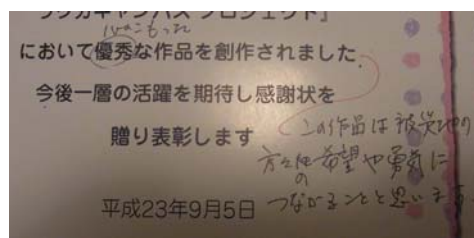 ツカキャンバス プロジェクト」
心のこもった
において優秀な作品を創作されました
今後一層の活躍を期待し感謝状を
贈り表彰します
この作品は被災地の
方々の希望や勇気に
つながることと思います。
平成23年9月5日